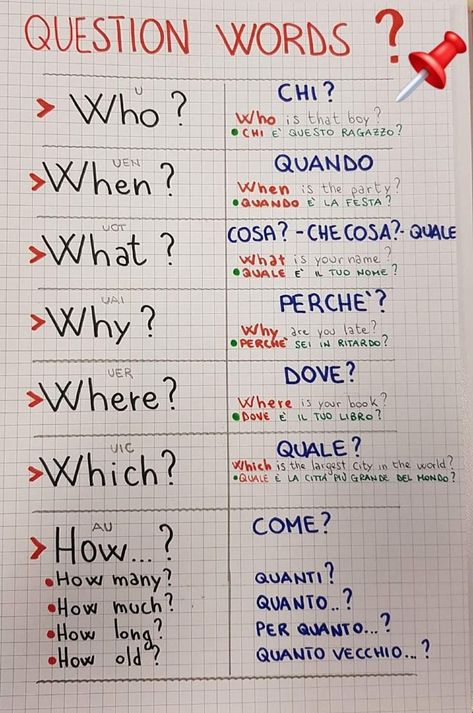 QUESTION WORDS ?
U
> Who ?
CHI ?
Who is that boy ?
• CHI E' QUESTO RAGAZZO ?
UEN
> When ?
QUANDO
When is the party ?
• QUANDO È LA FESTA ?
UOT
> What ?
COSA ? - CHE COSA ? - QUALE
What is your name ?
• QUALE E' IL TUO NOME ?
UAI
> Why ?
PERCHE' ?
Why are you late ?
• PERCHE' SEI IN RITARDO ?
UER
> Where ?
DOVE ?
Where is your book ?
• DOVE E' IL TUO LIBRO ?
UIC
> Which ?
QUALE ?
Which is the largest city in the world ?
• QUALE È LA CITTA' PIÙ GRANDE DEL MONDO ?
AU
> How... ?
COME ?
• How many ?
QUANTI ?
• How much ?
QUANTO.. ?
• How long ?
PER QUANTO... ?
• How old ?
QUANTO VECCHIO... ?